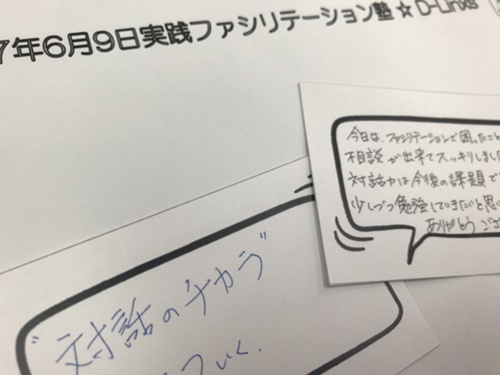 7年6月9日実践ファシリテーション塾☆D-Links
今日は、ファシリテーションで困ったこと
相談が出来てスッキリしました
対話力は今後の課題で
少しづつ勉強していきたいと思い
ありがとうござ
"対話のチカラ"
ついく.